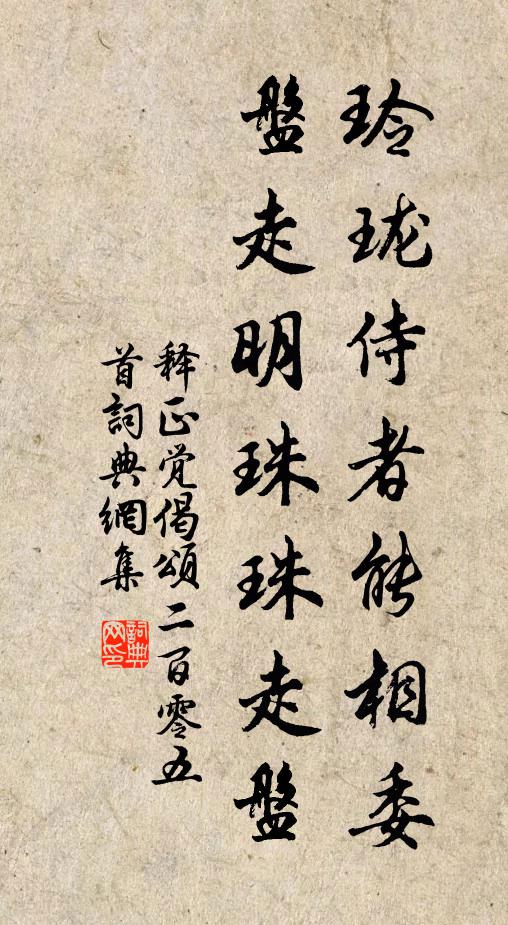 玲珑侍者能相委
盤走明珠珠走盤
释正觉偈頌二百零五
首詞典網集
詞典
网印